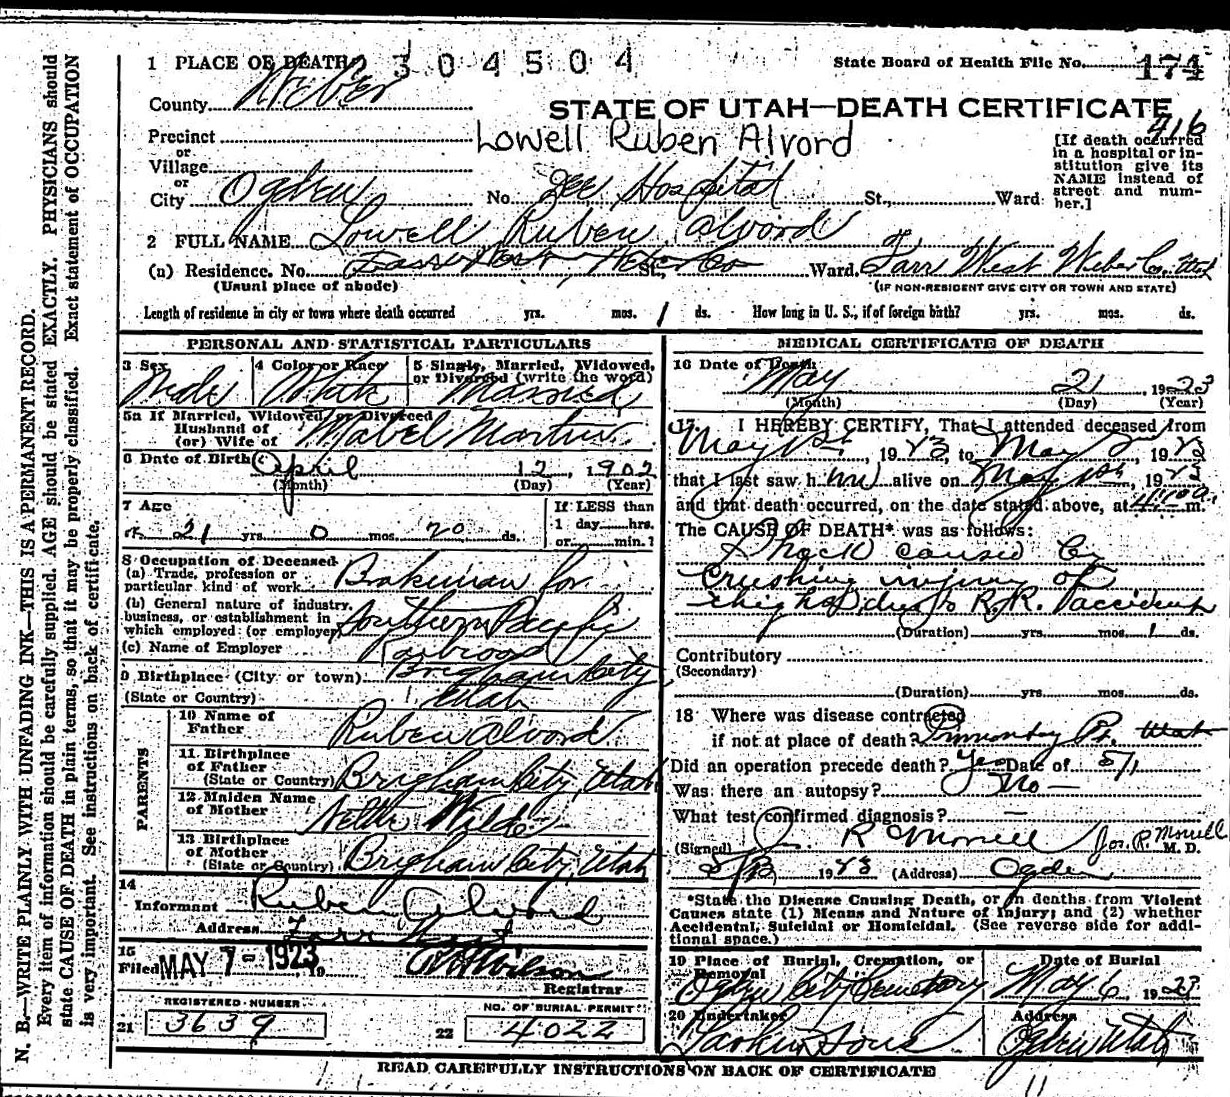 1 PLACE OF DEATH 304504 State Board of Health File No. 174
County Weber
STATE OF UTAH—DEATH CERTIFICATE
416
Precinct
Lowell Ruben Alvord
or
Village
or
City Ogden No. Dee Hospital St., Ward
[If death occurred
in a hospital or in-
stitution give its
NAME instead of
street and num-
ber.]
2 FULL NAME Lowell Ruben Alvord
(a) Residence. No. St., Weber Co Ward. Farr West Weber Co. Utah
(Usual place of abode) (IF NON-RESIDENT GIVE CITY OR TOWN AND STATE)
Length of residence in city or town where death occurred yrs. mos. 1 ds. How long in U. S., if of foreign birth? yrs. mos. ds.
PERSONAL AND STATISTICAL PARTICULARS
3 Sex 4 Color or Race 5 Single, Married, Widowed,
or Divorced (write the word)
Male White Married
5a If Married, Widowed, or Divorced
Husband of
(or) Wife of Mabel Martin
6 Date of Birth April 12, 1902
(Month) (Day) (Year)
7 Age
21 yrs. 0 mos. 20 ds.
If LESS than
1 day hrs.
or min.?
8 Occupation of Deceased
(a) Trade, profession or
particular kind of work Brakeman for
(b) General nature of industry,
business, or establishment in
which employed (or employer) Southern Pacific
(c) Name of Employer Railroad
9 Birthplace (City or town) Brigham City
(State or Country) Utah
PARENTS
10 Name of
Father Ruben Alvord
11. Birthplace
of Father
(State or Country) Brigham City, Utah
12. Maiden Name
of Mother Nettie Wilde
13. Birthplace
of Mother
(State or Country) Brigham City, Utah
14
Informant Ruben Alvord
Address Farr West
15
Filed MAY 7- 1923 19 Wilson
Registrar
REGISTERED NUMBER
21 3639
NO. OF BURIAL PERMIT
22 4022
MEDICAL CERTIFICATE OF DEATH
16 Date of Death
May 21 1923
(Month) (Day) (Year)
17 I HEREBY CERTIFY, That I attended deceased from
May 1st, 1923, to May 2nd, 1923
that I last saw him alive on May 1st, 1923
and that death occurred, on the date stated above, at m.
The CAUSE OF DEATH* was as follows:
Shock caused by
crushing injury of
thighs due to R.R. accident
(Duration) yrs. mos. 1 ds.
Contributory
(Secondary)
(Duration) yrs. mos. ds.
18 Where was disease contracted
if not at place of death? Promontory Pt. Utah
Did an operation precede death? Yes Date of 5/1
Was there an autopsy? No
What test confirmed diagnosis? —
(Signed) J. R Morrell Jos. R. Morrell M. D.
1923 (Address) Ogden
*State the Disease Causing Death, or in deaths from Violent
Causes state (1) Means and Nature of Injury; and (2) whether
Accidental, Suicidal or Homicidal. (See reverse side for addi-
tional space.)
19 Place of Burial, Cremation, or
Removal
Date of Burial
Ogden City Cemetery May 6, 1923
20 Undertaker Address
Larkin Sons Ogden Utah
READ CAREFULLY INSTRUCTIONS ON BACK OF CERTIFICATE
N. B.—WRITE PLAINLY WITH UNFADING INK—THIS IS A PERMANENT RECORD.
Every item of information should be carefully supplied. AGE should be stated EXACTLY. PHYSICIANS should
state CAUSE OF DEATH in plain terms, so that it may be properly classified. Exact statement of OCCUPATION
is very important. See instructions on back of certificate.